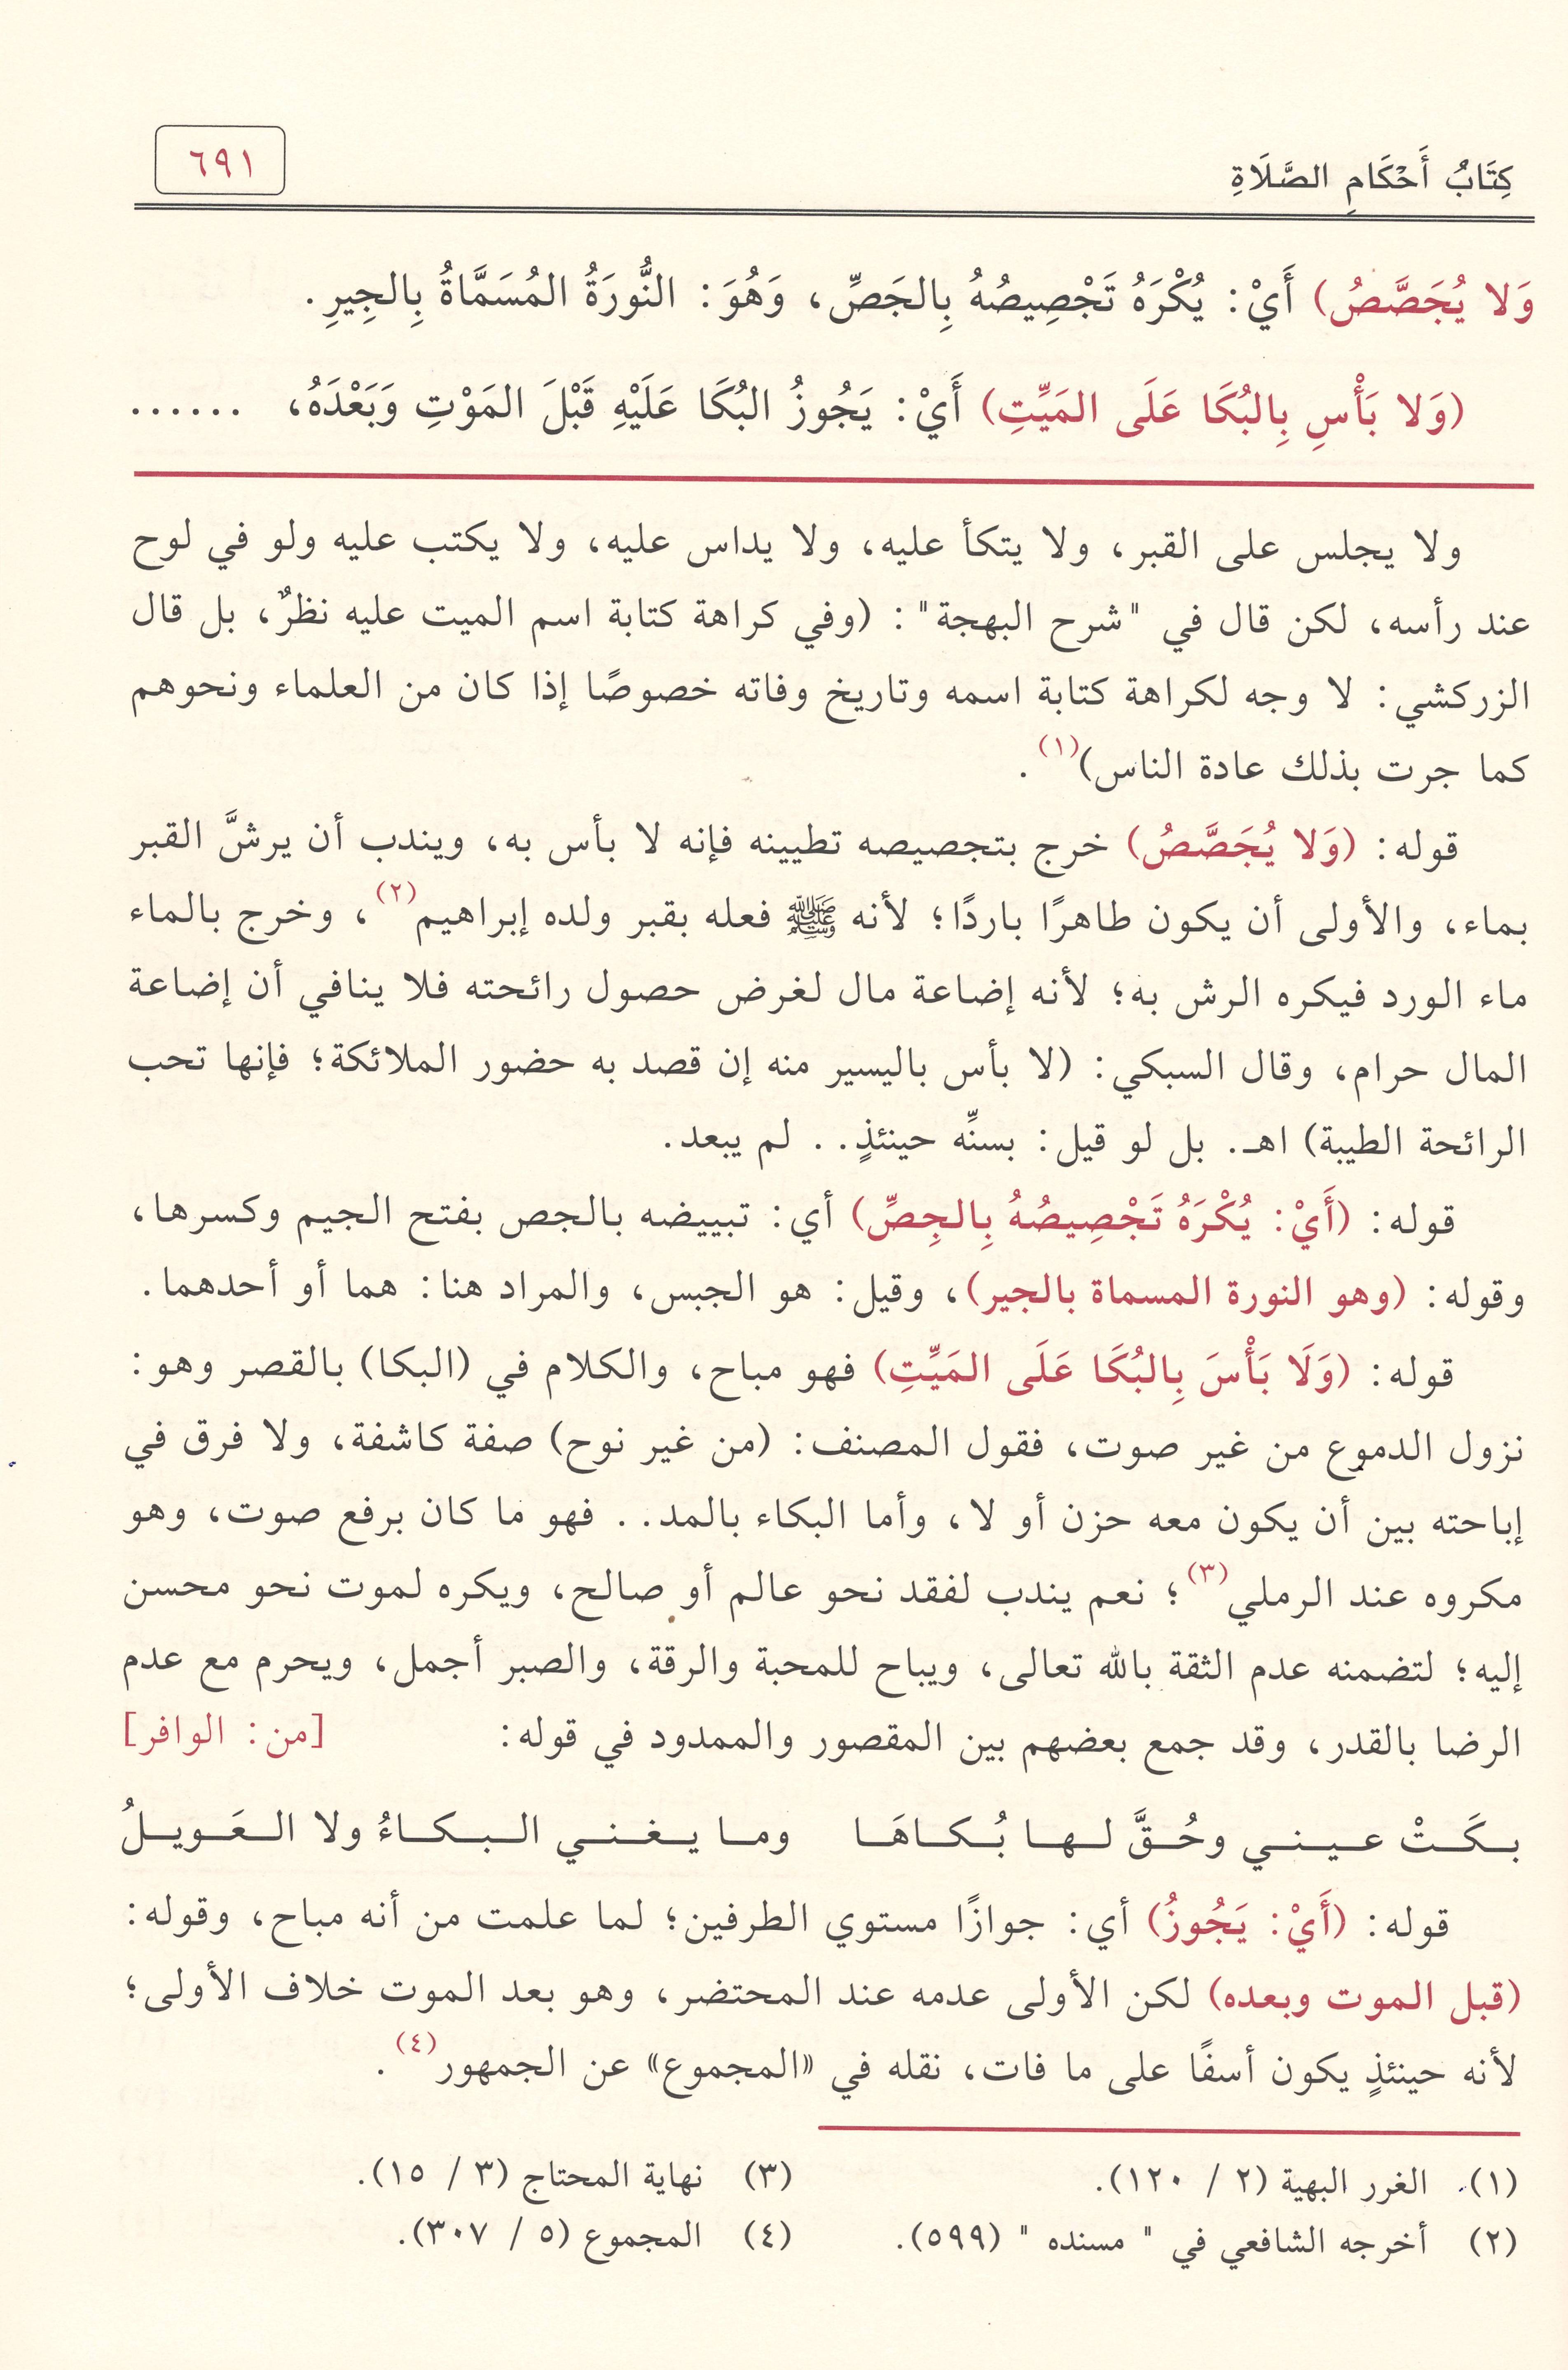 كِتَابُ أَحْكَامِ الصَّلَاةِ
٦٩١
وَلا يُجَصَّصُ) أَيْ: يُكْرَهُ تَجْصِيصُهُ بِالجَصِّ، وَهُوَ: النُّورَةُ المُسَمَّاةُ بِالجِيرِ.
(وَلا بَأْسِ بِالبُكَا عَلَى المَيِّتِ) أَيْ: يَجُوزُ البُكَا عَلَيْهِ قَبْلَ المَوْتِ وَبَعْدَهُ، ......
ولا يجلس على القبر، ولا يتكأ عليه، ولا يداس عليه، ولا يكتب عليه ولو في لوح
عند رأسه، لكن قال في "شرح البهجة": (وفي كراهة كتابة اسم الميت عليه نظرٌ، بل قال
الزركشي: لا وجه لكراهة كتابة اسمه وتاريخ وفاته خصوصًا إذا كان من العلماء ونحوهم
كما جرت بذلك عادة الناس)(١).
قوله: (وَلا يُجَصَّصُ) خرج بتجصيصه تطيينه فإنه لا بأس به، ويندب أن يرشَّ القبر
بماء، والأولى أن يكون طاهرًا باردًا؛ لأنه ﷺ فعله بقبر ولده إبراهيم(٢)، وخرج بالماء
ماء الورد فيكره الرش به؛ لأنه إضاعة مال لغرض حصول رائحته فلا ينافي أن إضاعة
المال حرام، وقال السبكي: (لا بأس باليسير منه إن قصد به حضور الملائكة؛ فإنها تحب
الرائحة الطيبة) اهـ. بل لو قيل: بسنِّه حينئذٍ.. لم يبعد.
قوله: (أَيْ: يُكْرَهُ تَجْصِيصُهُ بِالجِصِّ) أي: تبييضه بالجص بفتح الجيم وكسرها،
وقوله: (وهو النورة المسماة بالجير)، وقيل: هو الجبس، والمراد هنا: هما أو أحدهما.
قوله: (وَلَا بَأْسَ بِالبُكَا عَلَى المَيِّتِ) فهو مباح، والكلام في (البكا) بالقصر وهو:
نزول الدموع من غير صوت، فقول المصنف: (من غير نوح) صفة كاشفة، ولا فرق في
إباحته بين أن يكون معه حزن أو لا، وأما البكاء بالمد.. فهو ما كان برفع صوت، وهو
مكروه عند الرملي(٣)؛ نعم يندب لفقد نحو عالم أو صالح، ويكره لموت نحو محسن
إليه؛ لتضمنه عدم الثقة بالله تعالى، ويباح للمحبة والرقة، والصبر أجمل، ويحرم مع عدم
الرضا بالقدر، وقد جمع بعضهم بين المقصور والممدود في قوله: [من: الوافر]
بكَتْ عيني وحُقَّ لها بُكاهَا وما يغني البكاءُ ولا العَويلُ
قوله: (أَيْ: يَجُوزُ) أي: جوازًا مستوي الطرفين؛ لما علمت من أنه مباح، وقوله:
(قبل الموت وبعده) لكن الأولى عدمه عند المحتضر، وهو بعد الموت خلاف الأولى؛
لأنه حينئذٍ يكون أسفًا على ما فات، نقله في «المجموع» عن الجمهور(٤).
(١) الغرر البهية (٢ / ١٢٠).
(٢) أخرجه الشافعي في " مسنده " (٥٩٩).
(٣) نهاية المحتاج (٣ / ١٥).
(٤) المجموع (٥ / ٣٠٧).